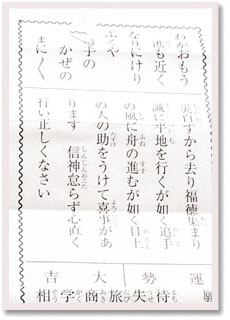 わがおもう
港も近く
なりにけり
ふくや
手の
かぜの
まにく
災自ずから去り福徳集まり
誠に平地を行くが如く追手
の風に舟の進むが如く目上
の人の助をうけて喜事があ
ります 信神怠らず心直く
行い正しくなさい
運勢大吉
待 失 旅 商 学 相